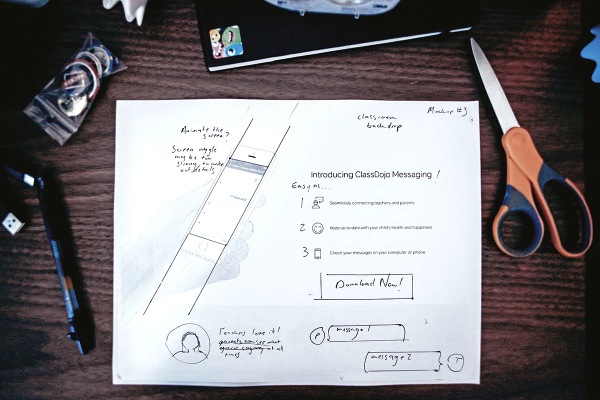 Mockup #3
classroom
backdrop
Animate the
screen?
Screen angle
may be too
strong, to make
out details
Introducing ClassDojo Messaging !
Easy as...
1 Seamlessly connecting teachers and parents
2 Keep up to date with your child's health and happiness
3 Check your messages on your computer or phone
Download Now!
Teachers love it!
parents can see what
at
P message 1
message 2 T